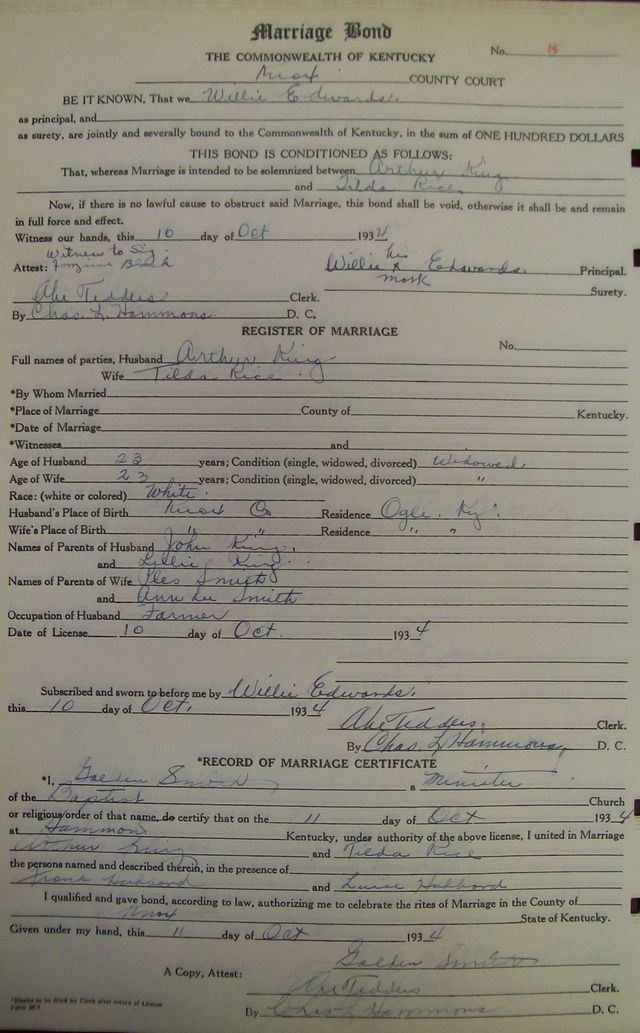 Marriage Bond
No. 8
THE COMMONWEALTH OF KENTUCKY
Knox COUNTY COURT
BE IT KNOWN, That we Willie Edwards.
as principal, and
as surety, are jointly and severally bound to the Commonwealth of Kentucky, in the sum of ONE HUNDRED DOLLARS
THIS BOND IS CONDITIONED AS FOLLOWS:
That, whereas Marriage is intended to be solemnized between Arthur King
and Tilda Rice.
Now, if there is no lawful cause to obstruct said Marriage, this bond shall be void, otherwise it shall and remain
in full force and effect.
Witness our hands, this 10 day of Oct 1934
Witness to Sig.
Attest:
Willie his x mark Edwards Principal.
Surety.
Abe Tedders Clerk.
By Chas. L. Hammons. D. C.
REGISTER OF MARRIAGE
No.
Full names of parties, Husband Arthur King
Wife Tilda Rice.
*By Whom Married
*Place of Marriage County of Kentucky.
*Date of Marriage
*Witnesses and
Age of Husband 23 years; Condition (single, widowed, divorced) Widowed
Age of Wife 23 years; Condition (single, widowed, divorced) "
Race: (white or colored) White.
Husband's Place of Birth Knox Co Residence Ogle. Ky.
Wife's Place of Birth " " Residence " "
Names of Parents of Husband John King.
and Lillie King.
Names of Parents of Wife Ples Smith
and Ann Lee Smith
Occupation of Husband Farmer
Date of License 10 day of Oct. 1934
Subscribed and sworn to before me by Willie Edwards.
this 10 day of Oct. 1934
Abe Tedders. Clerk.
By Chas. L. Hammons, D. C.
*RECORD OF MARRIAGE CERTIFICATE
*I, Golden Smith a Minister
of the Baptist Church
or religious order of that name, do certify that on the 11 day of Oct 1934
at Hammon Kentucky, under authority of the above license, I united in Marriage
Arthur King and Tilda Rice
the persons named and described therein, in the presence of
Frank Hubbard and Luise Hubbard
I qualified and gave bond, according to law, authorizing me to celebrate the rites of Marriage in the County of
Knox State of Kentucky.
Given under my hand, this 11 day of Oct 1934
Golden Smith
A Copy, Attest:
Abe Tedders Clerk.
By Chas L Hammons D. C.
*Blanks to be filled by Clerk after return of License